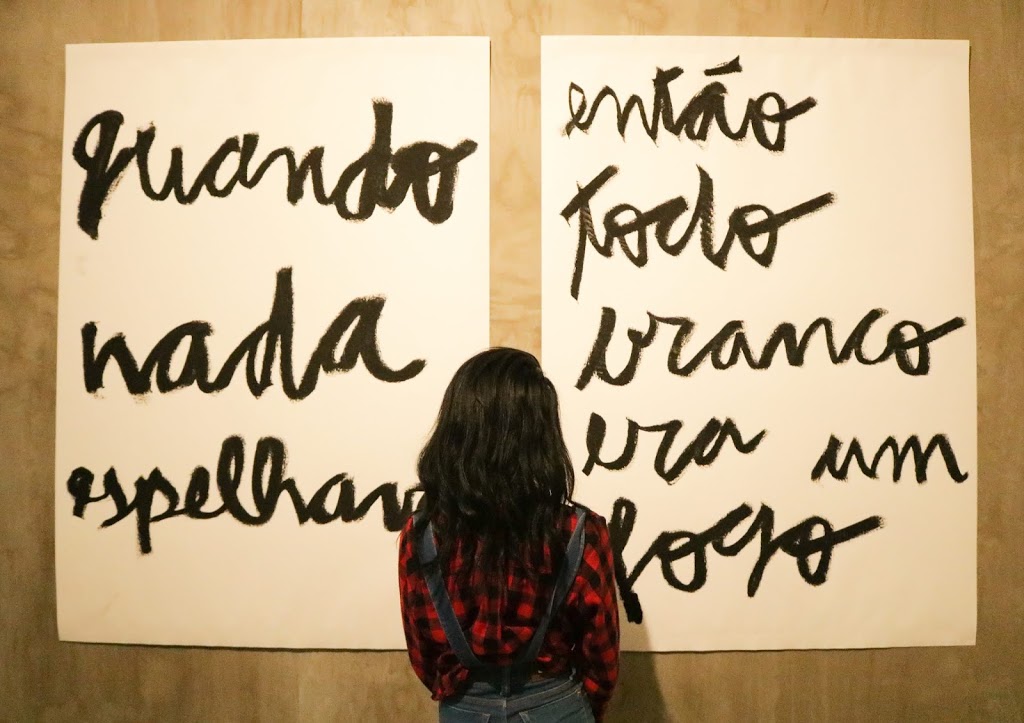 quando
nada
espelhava
então
todo
branco
era um
fogo